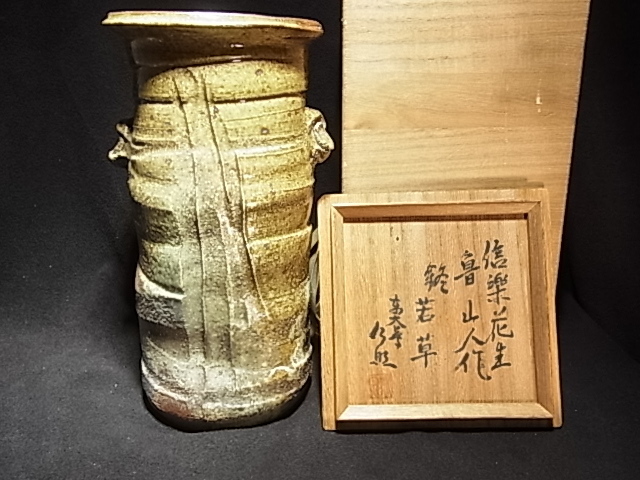 信樂花生
魯山人作
銘 若草